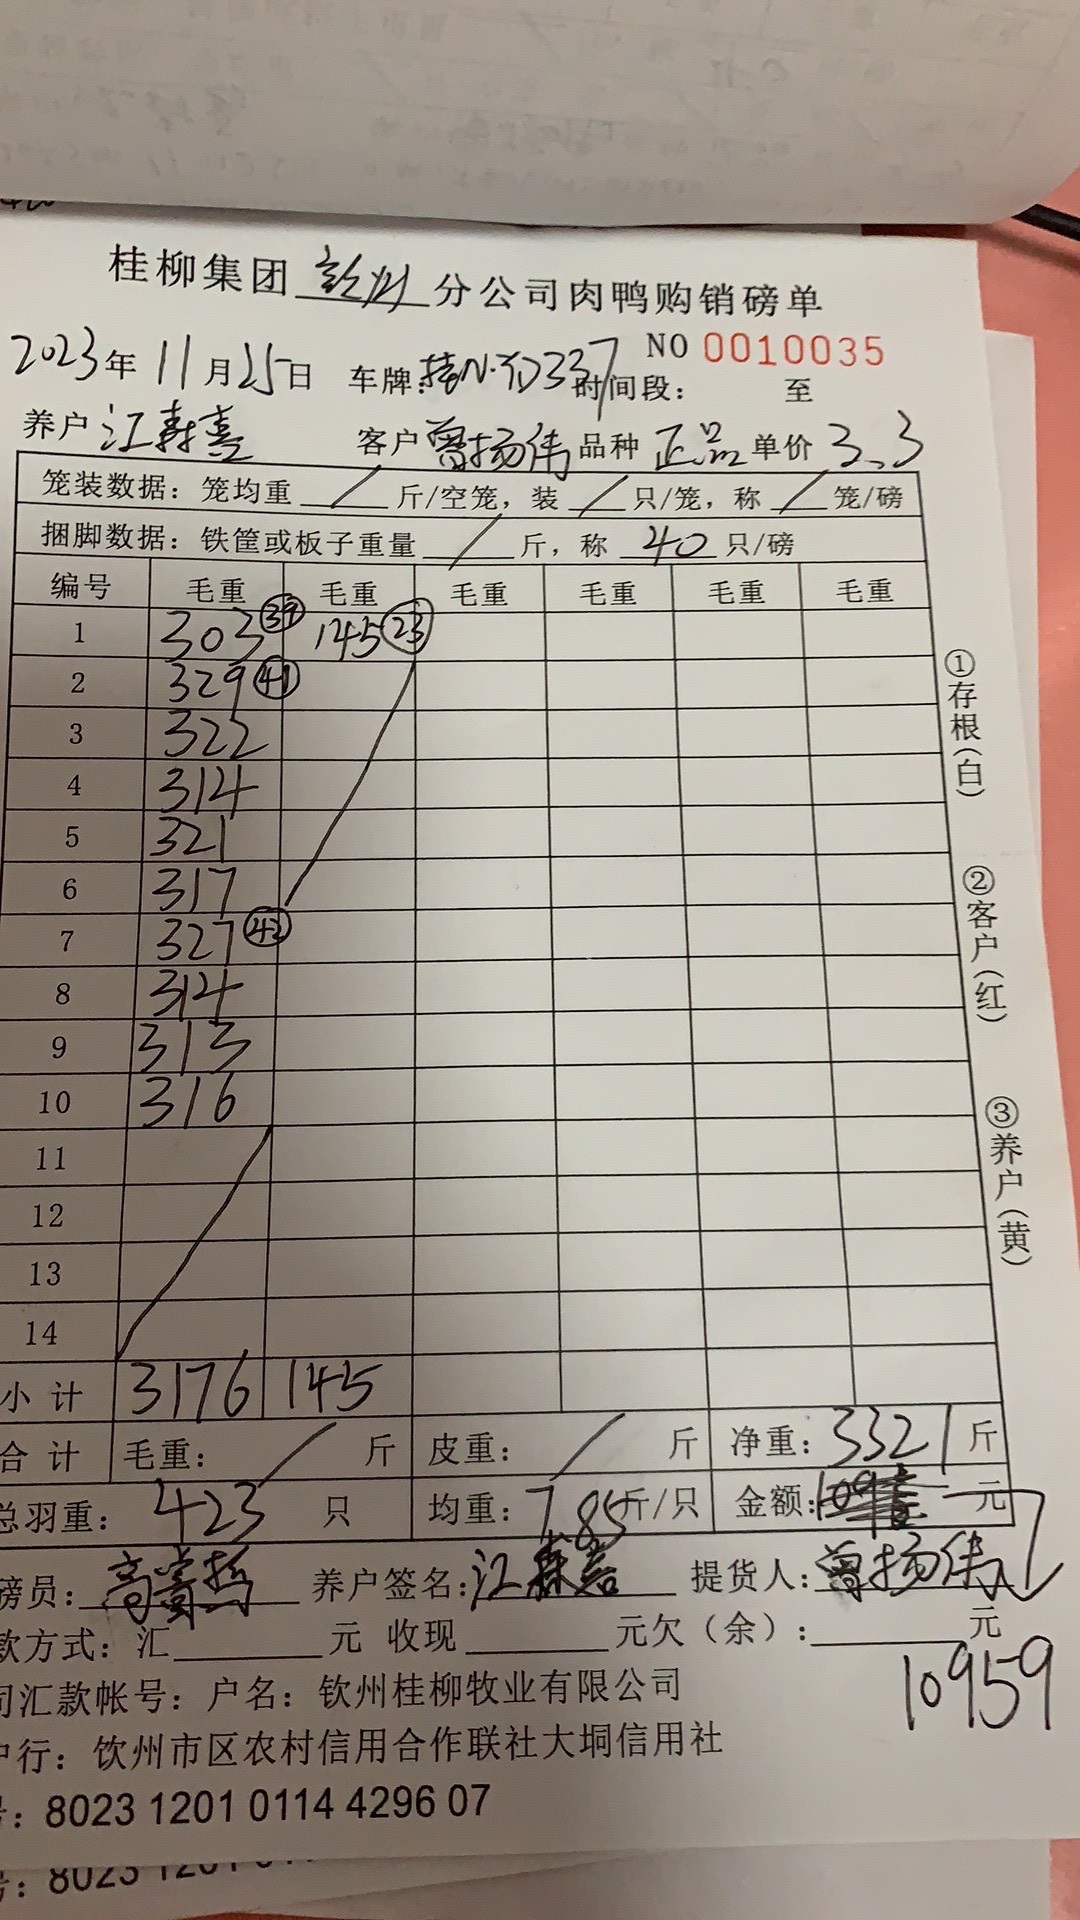 桂柳集团 钦州 分公司肉鸭购销磅单
2023年11月25日 车牌:桂N·D337 时间段: 至 NO 0010035
养户 江寿喜 客户 曾扬伟 品种 正品 单价 3.3
笼装数据: 笼均重 / 斤/空笼, 装 / 只/笼, 称 / 笼/磅
捆脚数据: 铁筐或板子重量 / 斤, 称 40 只/磅
编号 毛重 毛重 毛重 毛重 毛重 毛重
1 303 39 145 23
2 329 41
3 322
4 314
5 321
6 317
7 327 42
8 314
9 313
10 316
11
12
13
14
小计 3176 145
合计 毛重: / 斤 皮重: / 斤 净重: 3321 斤
总羽重: 423 只 均重: 7.85斤/只 金额: 元
磅员: 养户签名: 提货人: 曾扬伟
款方式: 汇 元 收现 元欠(余): 元
10959
司汇款帐号: 户名: 钦州桂柳牧业有限公司
户行: 钦州市区农村信用合作联社大垌信用社
号: 8023 1201 0114 4296 07
号: 8023 1201
①存根(白)
②客户(红)
③养户(黄)